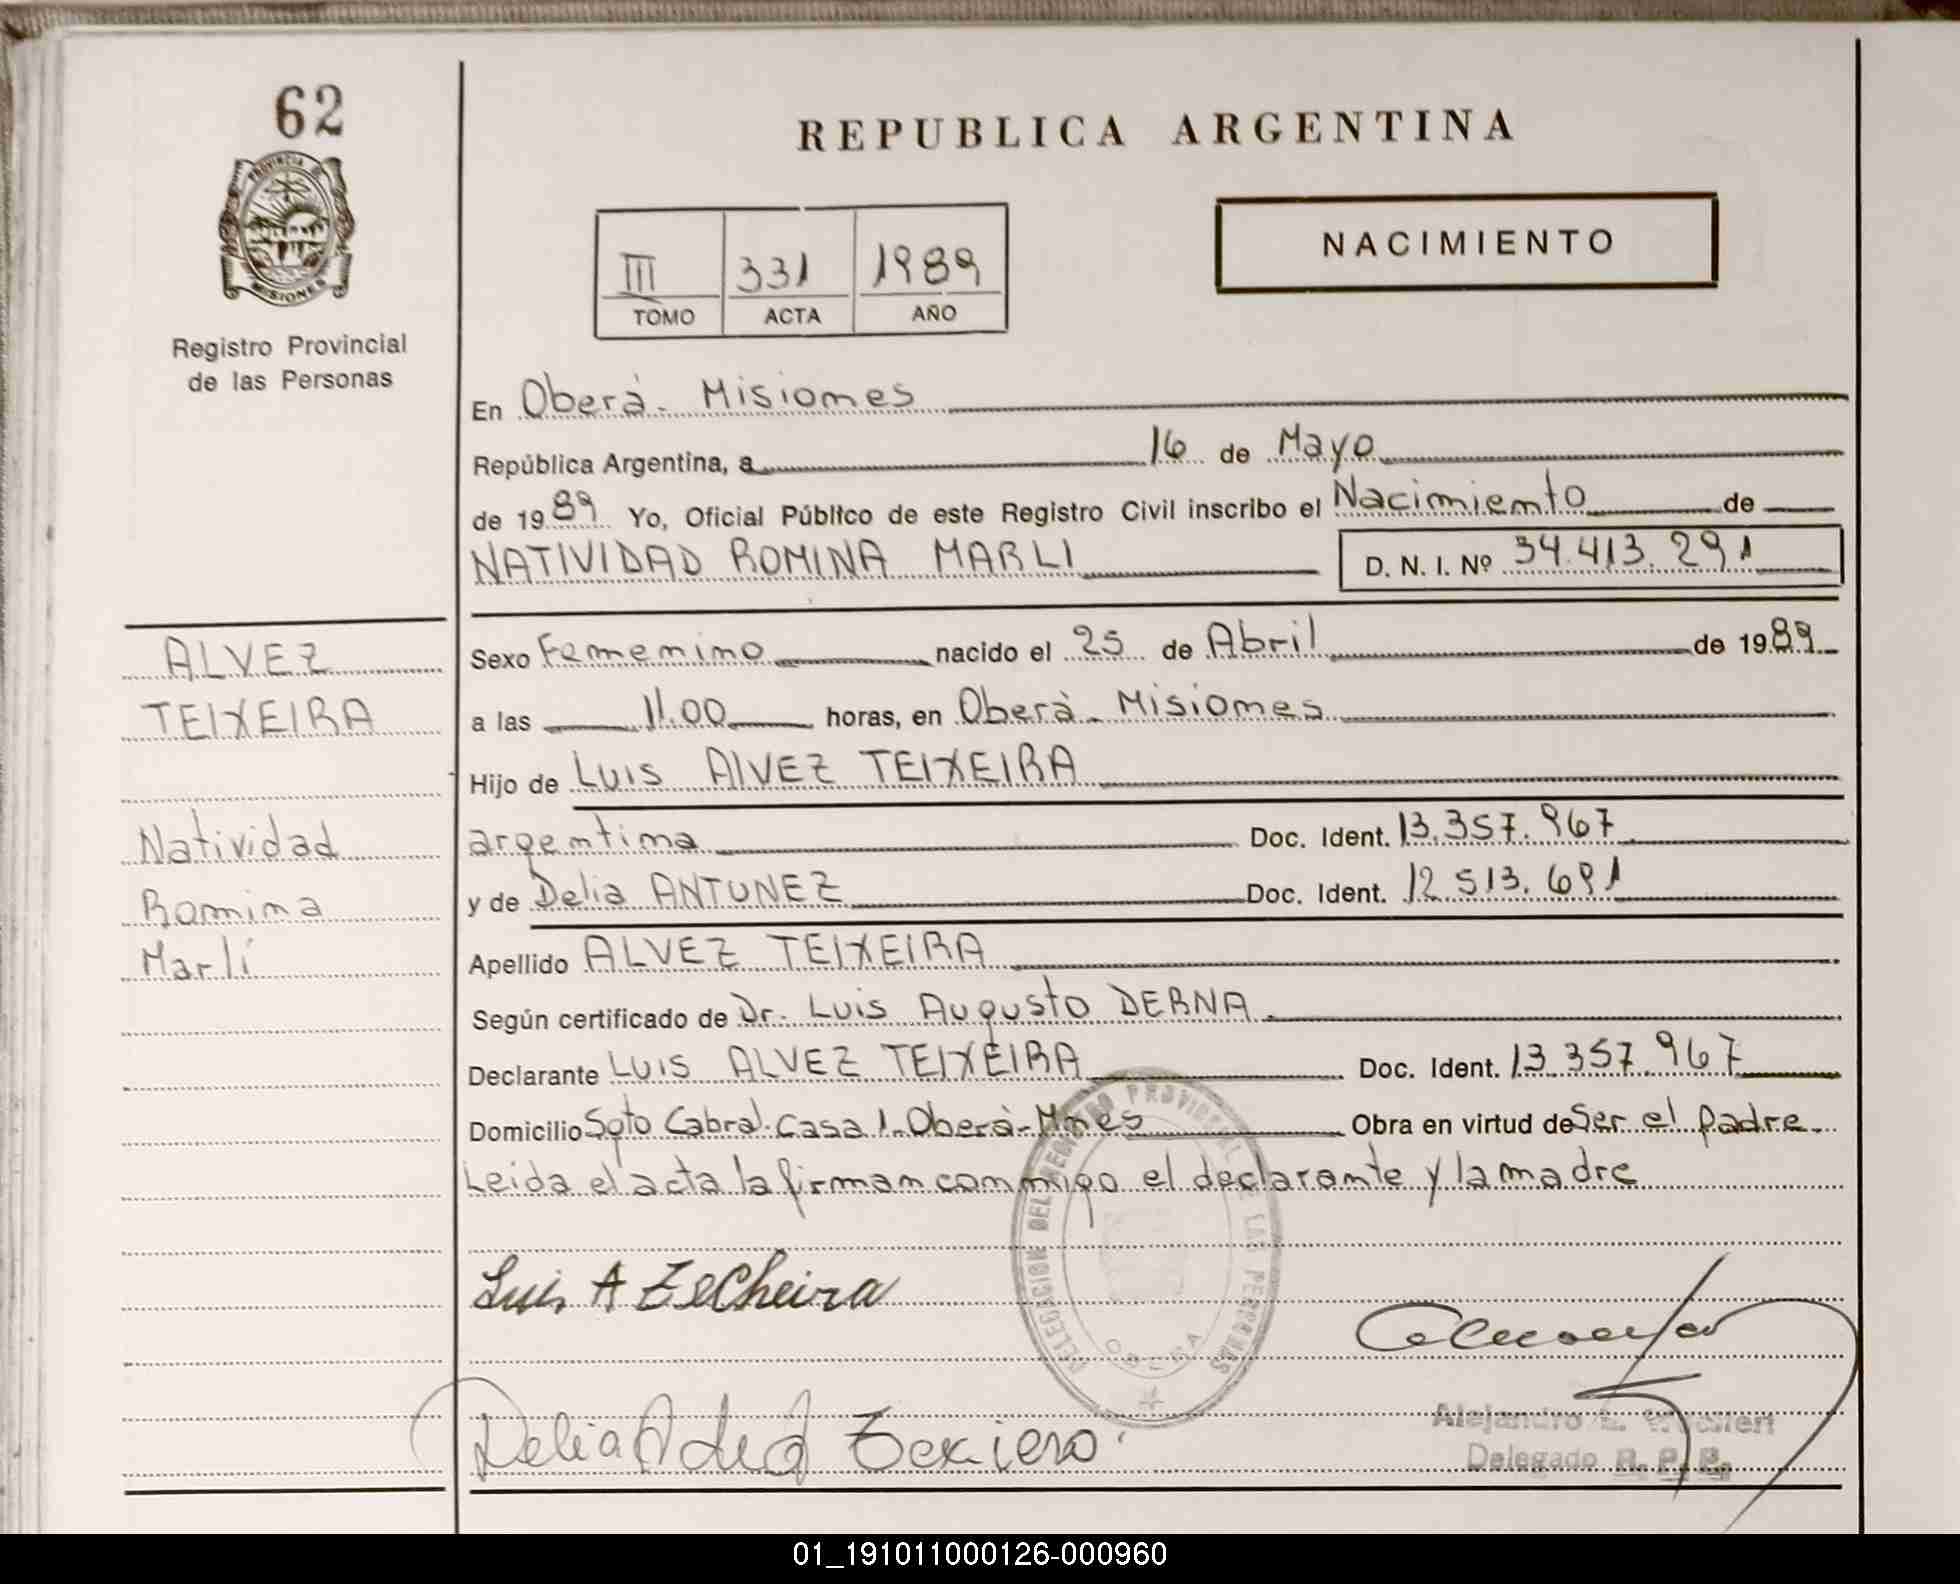 62
REPUBLICA ARGENTINA
PROVINCIA DE
MISIONES
III 331 1989
TOMO ACTA AÑO
NACIMIENTO
Registro Provincial
de las Personas
En Oberà - Misiones
República Argentina, a 16 de Mayo
de 1989 Yo, Oficial Público de este Registro Civil inscribo el Nacimiento de
NATIVIDAD ROMINA MARLI D. N. I. Nº 34.413.291
ALVEZ
TEIXEIRA
Natividad
Romina
Marlí
Sexo Femenino nacido el 25 de Abril de 1989
a las 11.00 horas, en Oberà - Misiones
Hijo de LUIS AlVEZ TEIXEIRA
argentina Doc. Ident. 13.357.967
y de Delia ANTUNEZ Doc. Ident. 12.513.691
Apellido ALVEZ TEIXEIRA
Según certificado de Dr. Luis Augusto DERNA
Declarante LUIS ALVEZ TEIXEIRA Doc. Ident. 13.357.967
Domicilio Sgto Cabral. Casa 1- Oberà - Mnes Obra en virtud de Ser el padre
Leida el acta la firman conmigo el declarante y la madre
DELEGACION DEL REGISTRO PROVINCIAL DE LAS PERSONAS
OBERA
Luis A
Delia
Alejandro E.
Delegado R. P. P.
01_191011000126-000960